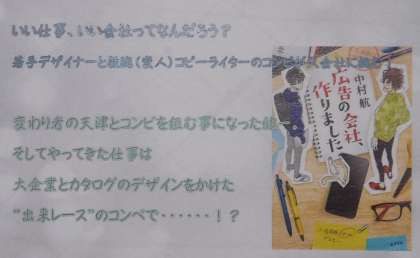 いい仕事、いい会社ってなんだろう？
若手デザイナーと敏腕（変人）コピーライターのコンビが会社に
変わり者の天津とコンビを組む事になった
そしてやってきた仕事は
大企業とカタログのデザインをかけた
“出来レース”のコンペで・・・・・・！？
中村航
広告の会社、
作りました